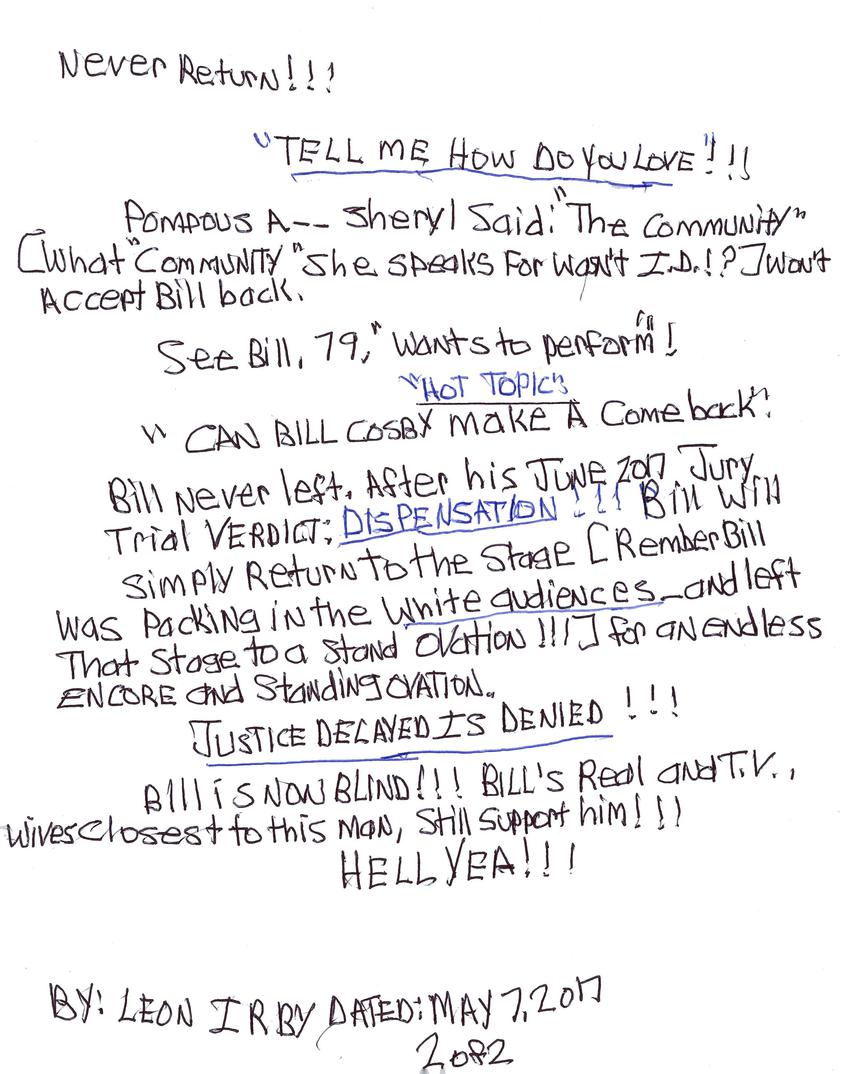 Never Return!!!
"TELL ME HOW DO YOU LOVE"!!!
Pompous A-- Sheryl Said: "The Community"
[What "Community" She speaks for Won't I.D.!?] Won't
Accept Bill back.
See Bill, 79, "Wants to perform"!
"HOT TOPIC"
"CAN BILL COSBY make A Comeback".
Bill Never left. After his JUNE 2017 Jury
Trial VERDICT; DISPENSATION!!! Bill Will
Simply Return to the Stage [Rember Bill
was Packing in the White audiences_and left
That Stage to a Stand Ovation!!!] for an endless
ENCORE and Standing OVATION.
JUSTICE DELAYED IS DENIED!!!
Bill is NOW BLIND!!! BILL's Real and T.V.,
wives closest to this Man, Still Support him!!!
HELL YEA!!!
BY: LEON IRBY DATED: MAY 7, 2017
2 of 2